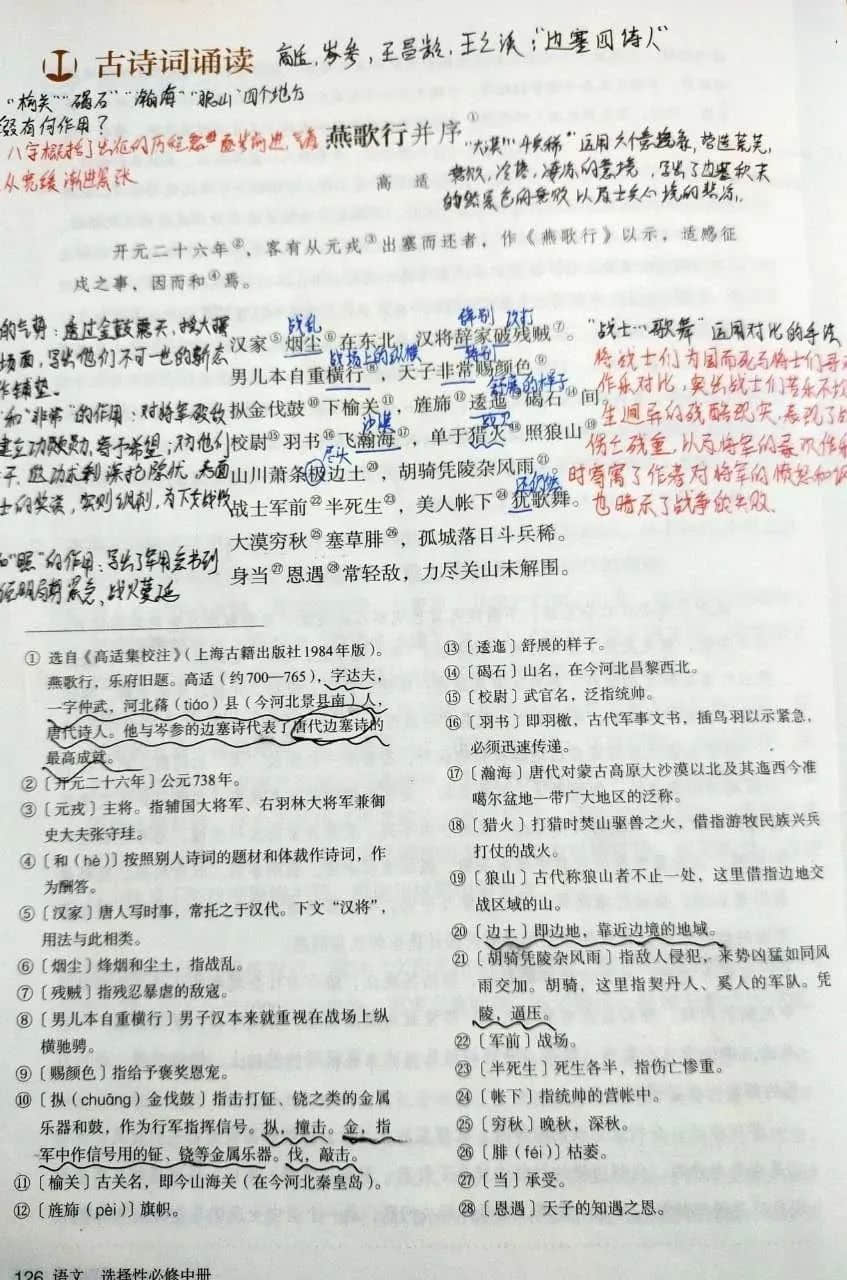 古诗词诵读
高适,岑参,王昌龄,王之涣:“边塞四诗人”
“榆关”“碣石”“瀚海”“狼山”四个地名
有何作用?
燕歌行并序①
八字概括了出征的历程
从宽缓渐进紧张
高 适
“大漠”“斗兵稀”运用
意境,写出了边塞秋末
开元二十六年②,客有从元戎③出塞而还者,作《燕歌行》以示,适感征
戍之事,因而和④焉。
战乱
辞别
攻打
汉家⑤烟尘⑥在东北,汉将辞家破残贼⑦。
战场上的纵横
特别
男儿本自重横行⑧,天子非常赐颜色⑨。
舒展的样子
摐金伐鼓⑩下榆关⑪,旌旆⑫逶迤⑬碣石⑭间。
沙漠
校尉⑮羽书⑯飞瀚海⑰,单于猎火⑱照狼山⑲。
尽头
山川萧条极边土⑳,胡骑凭陵杂风雨㉑。
还仍然
战士军前㉒半死生㉓,美人帐下㉔犹歌舞。
大漠穷秋㉕塞草腓㉖,孤城落日斗兵稀。
身当㉗恩遇㉘常轻敌,力尽关山未解围。
的气势:透过金鼓震天,
场面,写出他们不可一世的
作铺垫。
和“非常”的作用:对将军
建立功勋,寄于希望;
“照”的作用:写出了军用文书到
战火蔓延
“战士…歌舞”运用对比的手法
将战士们为国而死与将士们寻欢
作乐对比,突出战士们苦乐不均
生迥异的残酷现实,表现了战
伤亡惨重,以及将军的寻欢作乐
时寄寓了作者对将军的愤怒和
也暗示了战争的失败.
① 选自《高适集校注》(上海古籍出版社1984年版)。
燕歌行,乐府旧题。高适(约700—765),字达夫,
一字仲武,河北蓨(tiáo)县(今河北景县南)人,
唐代诗人。他与岑参的边塞诗代表了唐代边塞诗的
最高成就。
②〔开元二十六年〕公元738年。
③〔元戎〕主将。指辅国大将军、右羽林大将军兼御
史大夫张守珪。
④〔和(hè)〕按照别人诗词的题材和体裁作诗词,作
为酬答。
⑤〔汉家〕唐人写时事,常托之于汉代。下文“汉将”,
用法与此相类。
⑥〔烟尘〕烽烟和尘土,指战乱。
⑦〔残贼〕指残忍暴虐的敌寇。
⑧〔男儿本自重横行〕男子汉本来就重视在战场上纵
横驰骋。
⑨〔赐颜色〕指给予褒奖恩宠。
⑩〔摐(chuāng)金伐鼓〕指击打钲、铙之类的金属
乐器和鼓,作为行军指挥信号。摐,撞击。金,指
军中作信号用的钲、铙等金属乐器。伐,敲击。
⑪〔榆关〕古关名,即今山海关(在今河北秦皇岛)。
⑫〔旌旆(pèi)〕旗帜。
⑬〔逶迤〕舒展的样子。
⑭〔碣石〕山名,在今河北昌黎西北。
⑮〔校尉〕武官名,泛指统帅。
⑯〔羽书〕即羽檄,古代军事文书,插鸟羽以示紧急,
必须迅速传递。
⑰〔瀚海〕唐代对蒙古高原大沙漠以北及其迤西今准
噶尔盆地一带广大地区的泛称。
⑱〔猎火〕打猎时焚山驱兽之火,借指游牧民族兴兵
打仗的战火。
⑲〔狼山〕古代称狼山者不止一处,这里借指边地交
战区域的山。
⑳〔边土〕即边地,靠近边境的地域。
㉑〔胡骑凭陵杂风雨〕指敌人侵犯,来势凶猛如同风
雨交加。胡骑,这里指契丹人、奚人的军队。凭
陵,逼压。
㉒〔军前〕战场。
㉓〔半死生〕死生各半,指伤亡惨重。
㉔〔帐下〕指统帅的营帐中。
㉕〔穷秋〕晚秋,深秋。
㉖〔腓(féi)〕枯萎。
㉗〔当〕承受。
㉘〔恩遇〕天子的知遇之恩。
126 语文 选择性必修中册